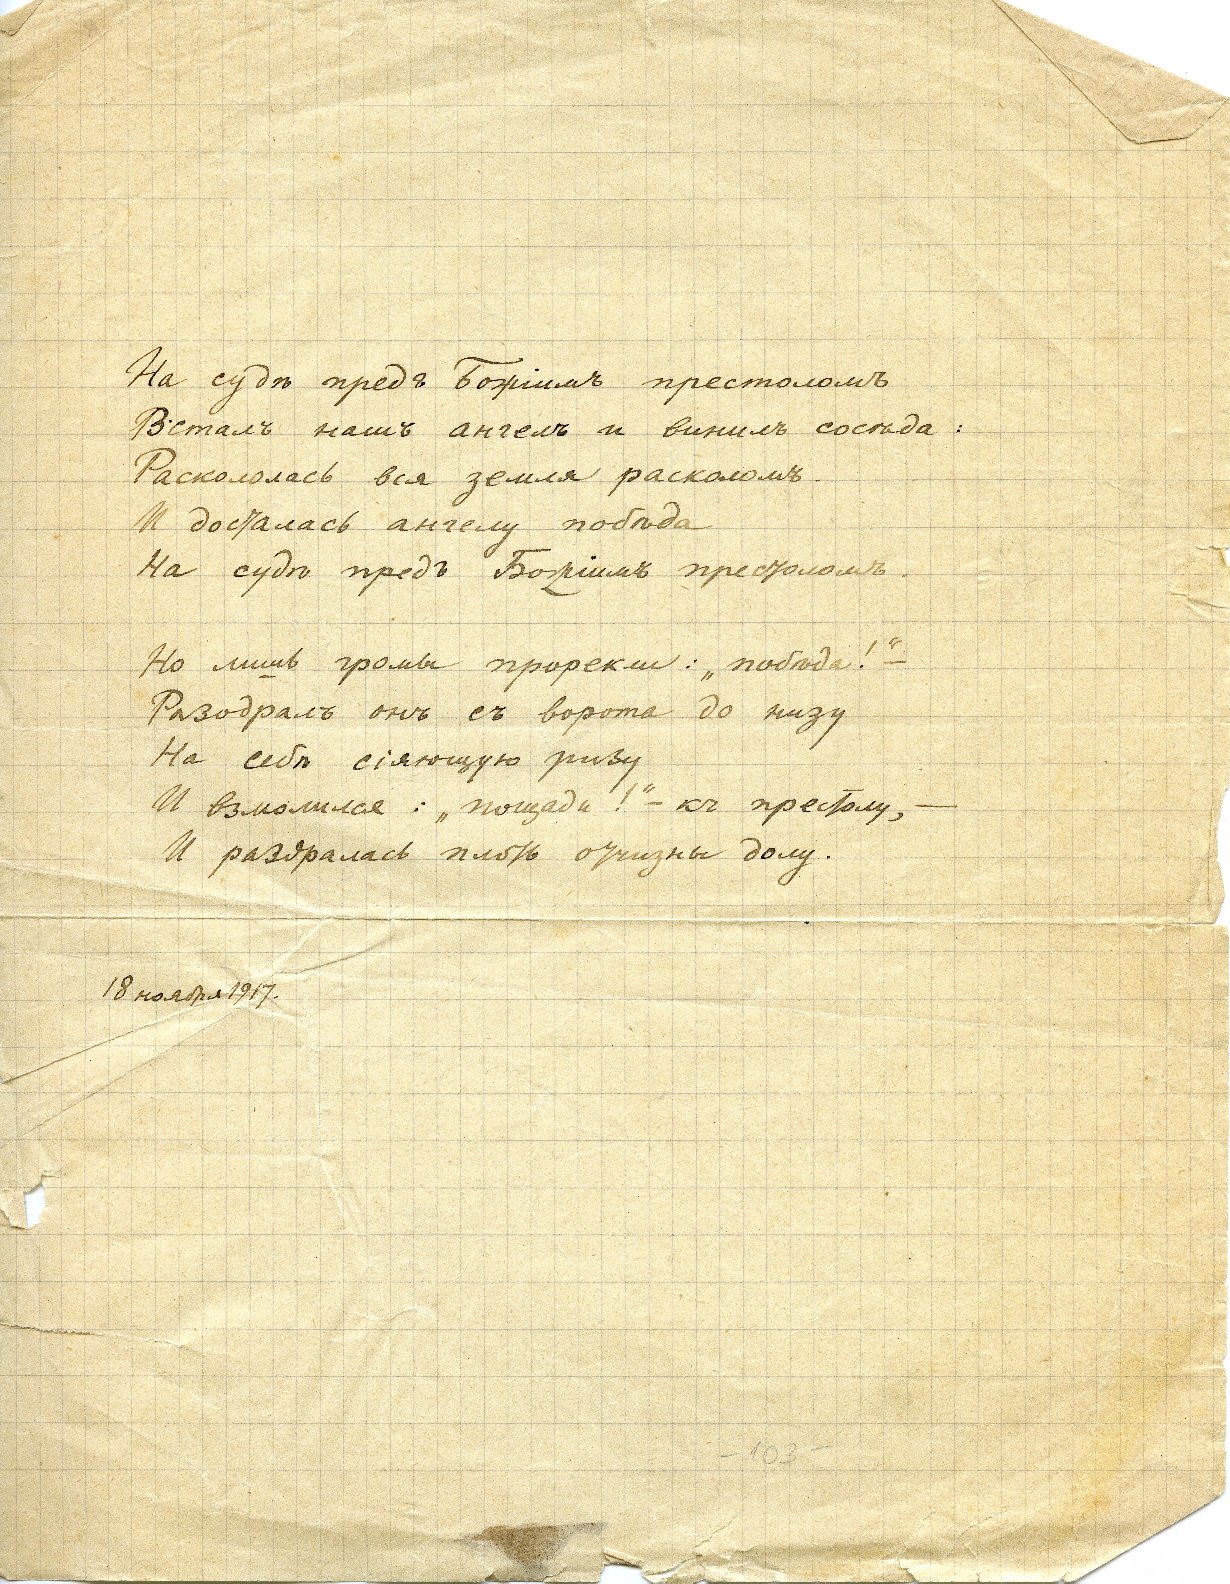 На судѣ предъ Божіимъ престоломъ
Всталъ нашъ ангелъ и винилъ сосѣда:
Раскололась вся земля расколомъ.
И досталась ангелу побѣда
На судѣ предъ Божіимъ престоломъ.
Но лишь громы прорекли: „побѣда!“ —
Разодралъ онъ съ ворота до низу
На себѣ сіяющую ризу
И взмолился: „пощади!“ — къ престолу, —
И разодралась плоть отчизны долу.
18 ноября 1917.
– 103 –